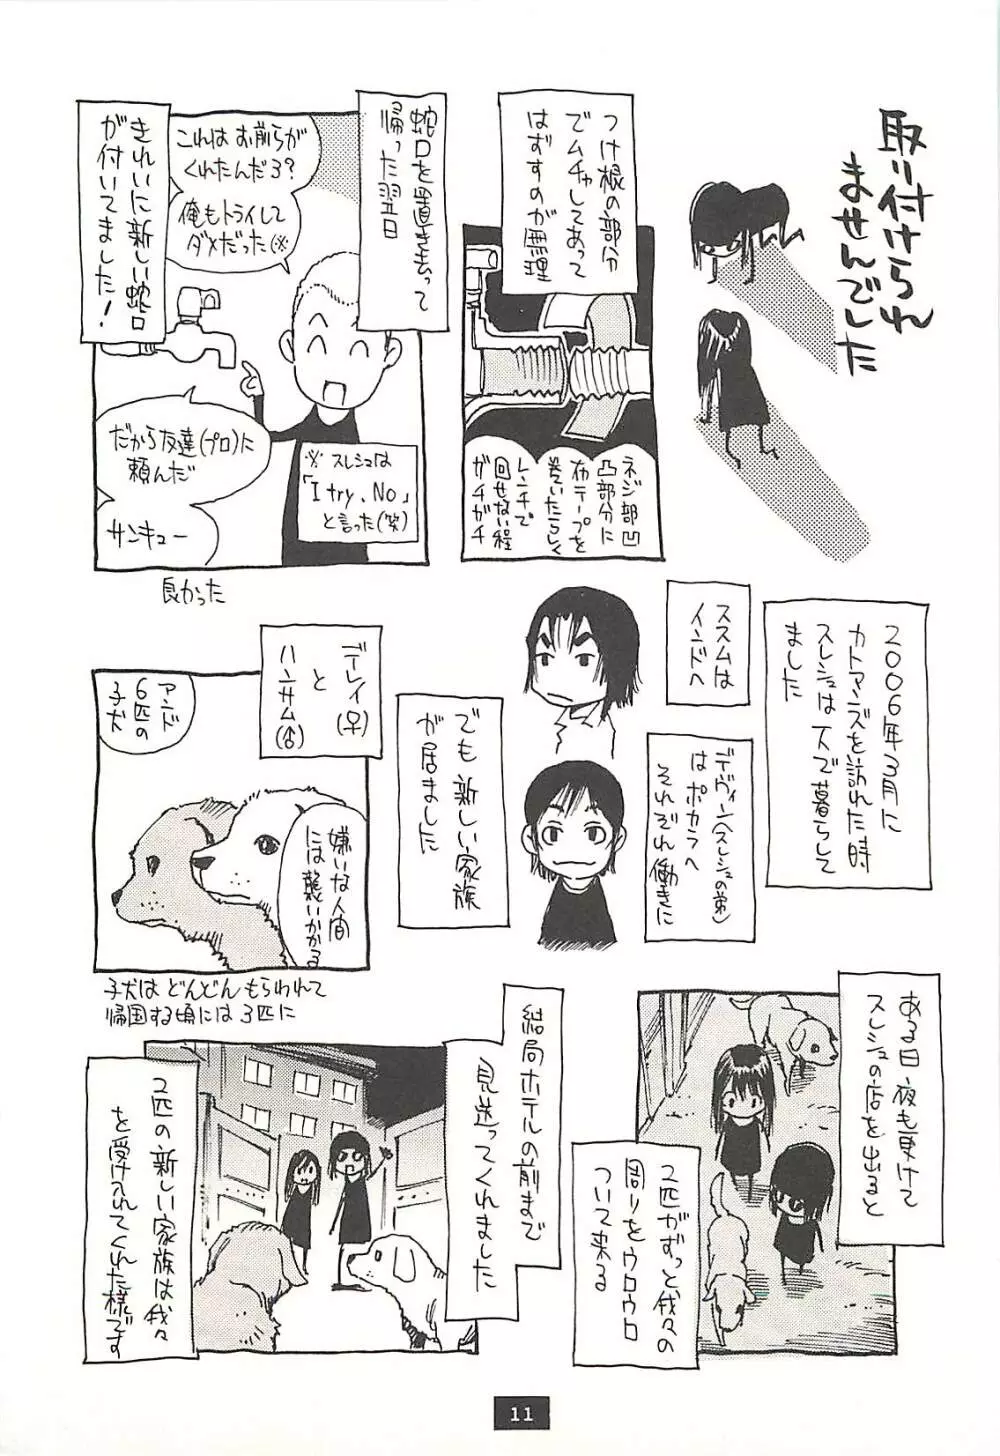 取り付けられ
ませんでした
つけ根の部分
でムチャしてあって
はずすのが無理
ネジ部凹
凸部分に
布テープを
巻いたらしく
レンチで
回せない程
ガチガチ
蛇口を置き去って
帰った翌日
これは お前らが
くれたんだろ?
俺もトライして
ダメだった(※
きれいに新しい蛇口
が付いてました!
だから友達(プロ)に
頼んだ
サンキュー
※ スレシュは
「I try, No」
と言った(笑)
良かった
2006年3月に
カトマンズを訪れた時
スレシュは一人で暮らして
ました
ススムは
インドへ
デヴィン(スレシュの弟)
はポカラへ
それぞれ働きに
でも新しい家族
が居ました
デーレイ(♀)
と
ハンサム(♂)
アンド
6匹の
子犬
嫌いな人間
には襲いかかる
子犬は どんどん もらわれて
帰国する頃には 3匹に
ある日 夜も更けて
スレシュの店を出ると
2匹がずっと我々の
周りをウロウロ
ついて来る
結局ホテルの前まで
見送ってくれました
2匹の新しい家族は我々
を受け入れてくれた様です
11